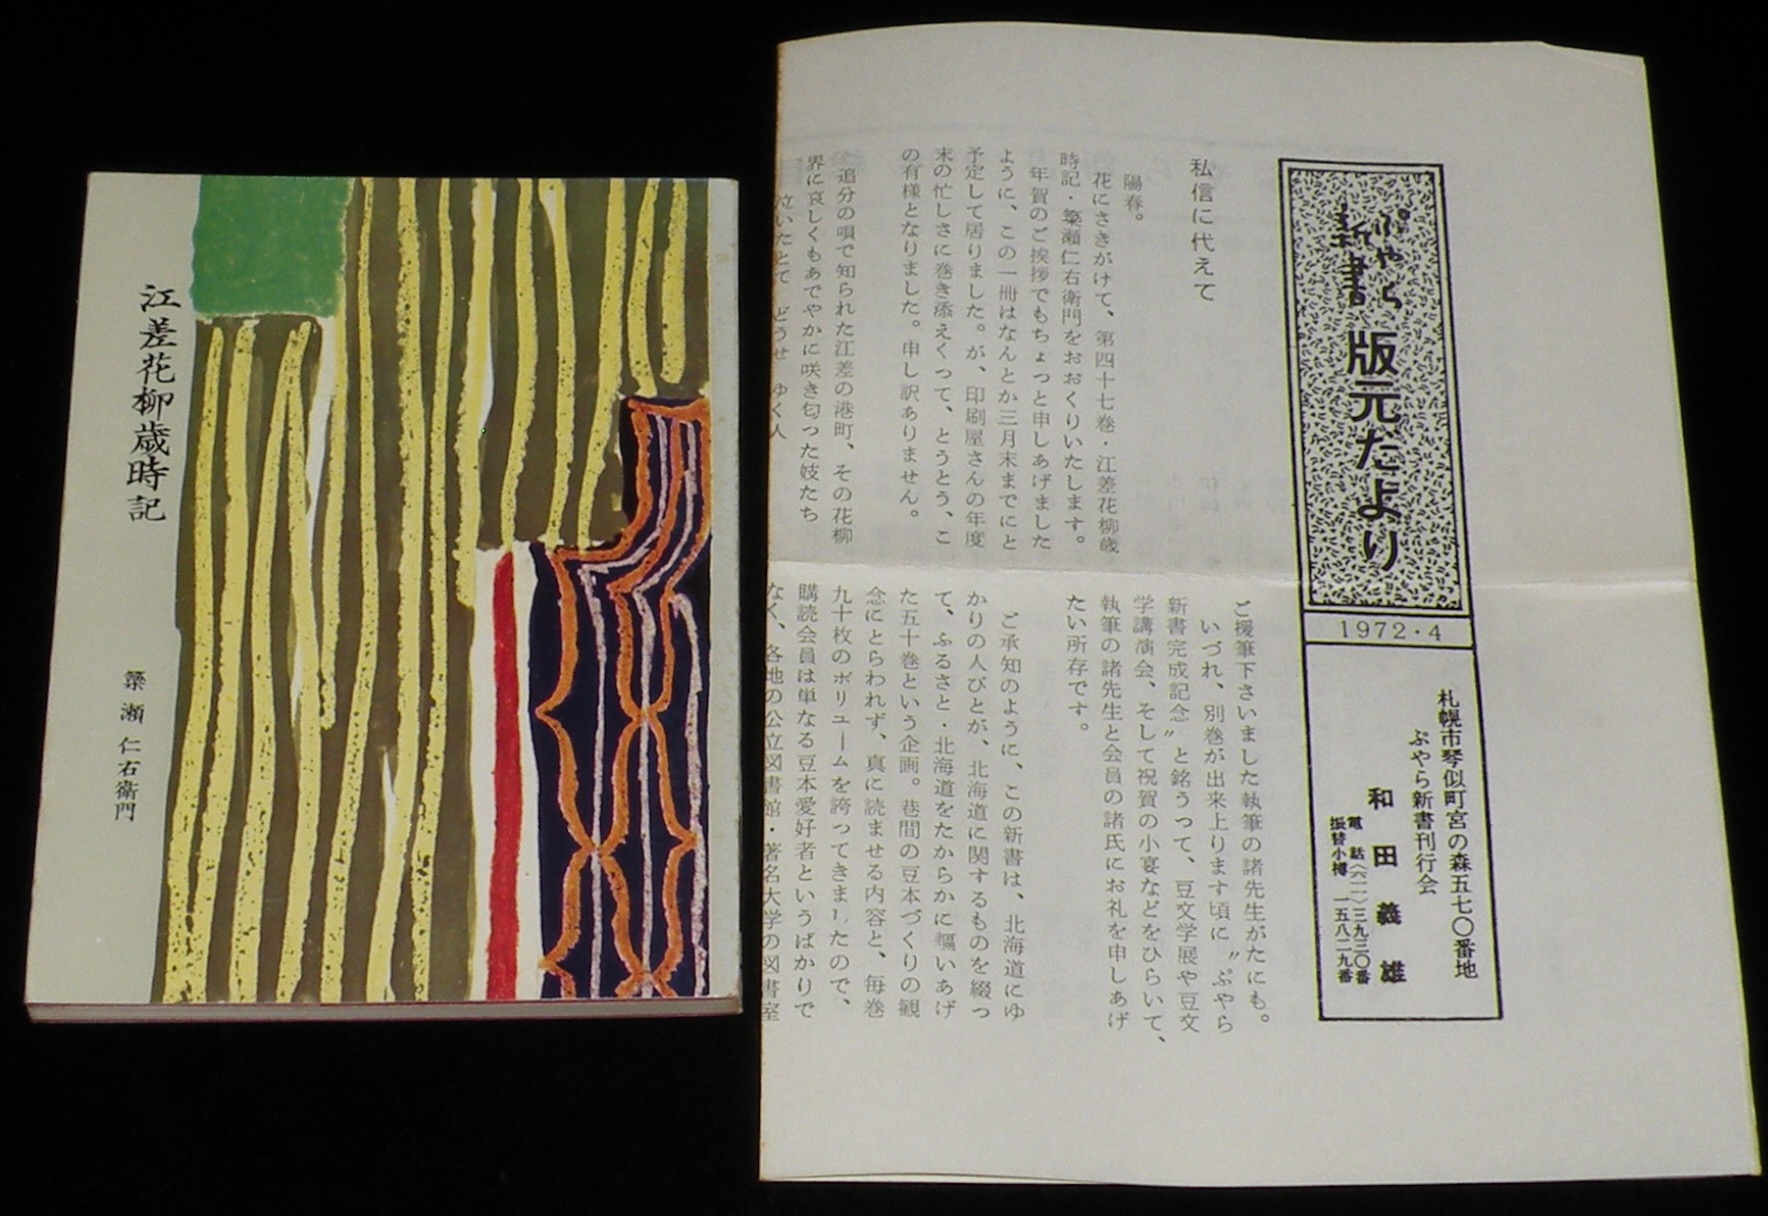 江差花柳歳時記
簗瀬仁右衛門
ぷやら新書
版元たより
1972・4
札幌市琴似町宮の森五七〇番地
ぷやら新書刊行会
和田義雄
電話〈六一〉三九三〇番
振替小樽 一五八二九番
私信に代えて
陽春。
花にさきがけて、第四十七巻・江差花柳歳
時記・簗瀬仁右衛門をおおくりいたします。
年賀のご挨拶でもちょっと申しあげました
ように、この一冊はなんとか三月末までにと
予定して居りました。が、印刷屋さんの年度
末の忙しさに巻き添えくって、とうとう、こ
の有様となりました。申し訳ありません。
追分の唄で知られた江差の港町、その花柳
界に哀しくもあでやかに咲き匂った妓たち
泣いたとて どうせ ゆく人
ご援筆下さいました執筆の諸先生がたにも。
いづれ、別巻が出来上ります頃に〝ぷやら
新書完成記念〟と銘うって、豆文学展や豆文
学講演会、そして祝賀の小宴などをひらいて、
執筆の諸先生と会員の諸氏にお礼を申しあげ
たい所存です。
ご承知のように、この新書は、北海道にゆ
かりの人びとが、北海道に関するものを綴っ
て、ふるさと・北海道をたからかに謳いあげ
た五十巻という企画。巷間の豆本づくりの観
念にとらわれず、真に読ませる内容と、毎巻
九十枚のボリュームを誇ってきましたので、
購読会員は単なる豆本愛好者というばかりで
なく、各地の公立図書館・著名大学の図書室